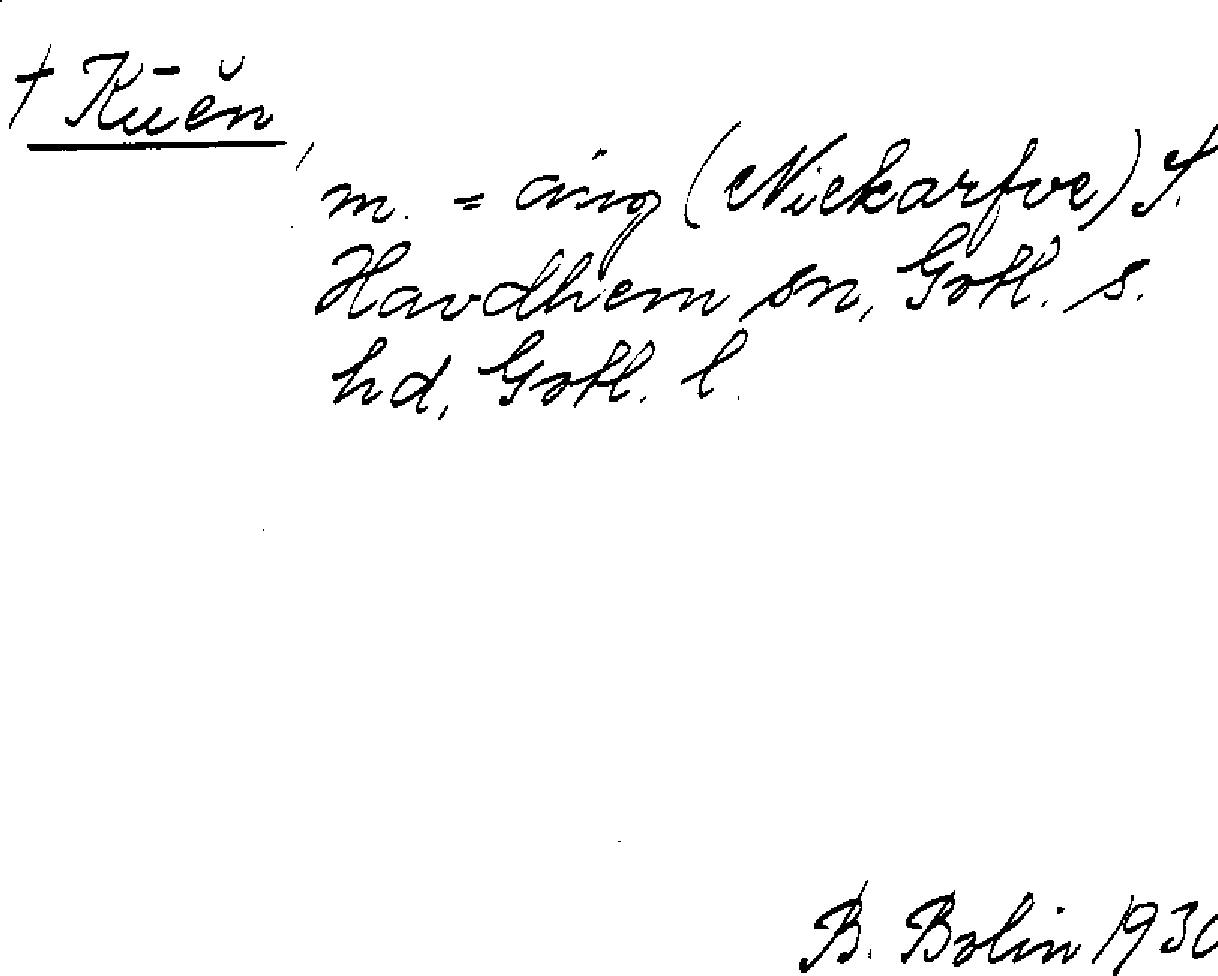 † Kūĕn,
m. = äng (Nickarfve) f.
Havdhem sn, Gotl. s.
hd, Gotl. l.
B. Bolin 193